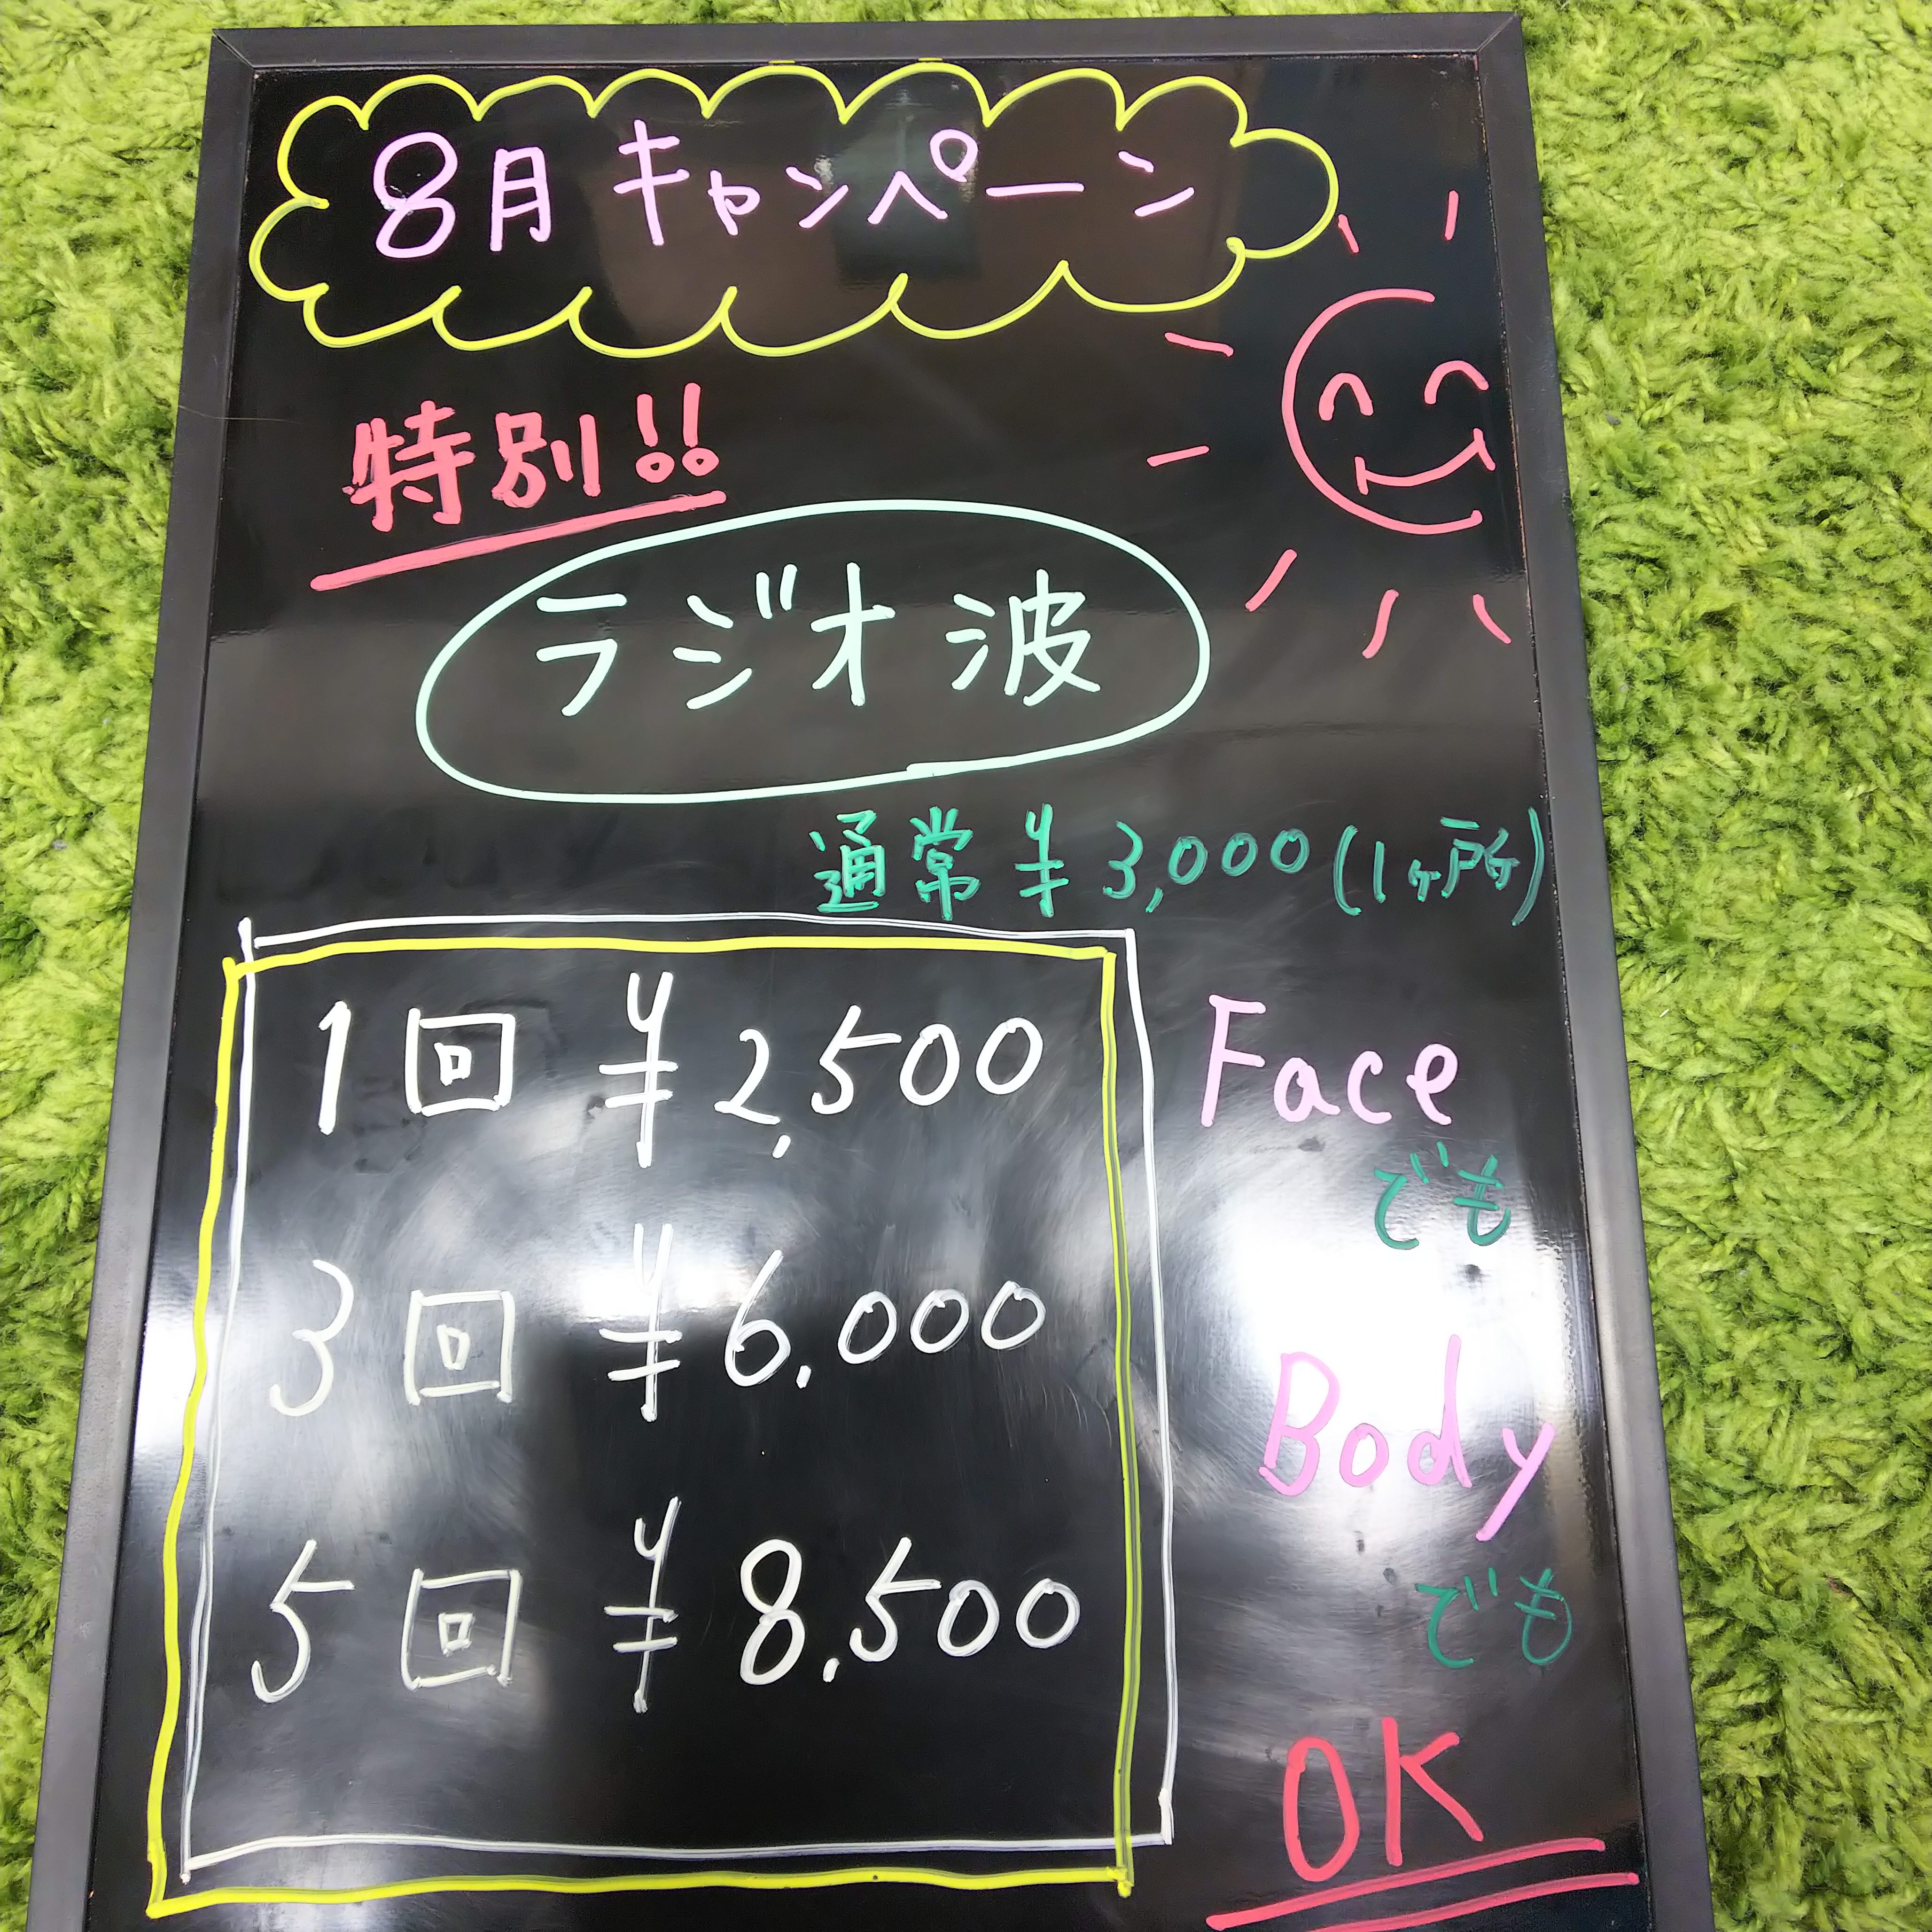 8月キャンペーン
特別!!
ラジオ波
通常¥3,000(1ヶ所)
1回 ¥2,500
3回 ¥6,000
5回 ¥8,500
Face
でも
Body
でも
OK